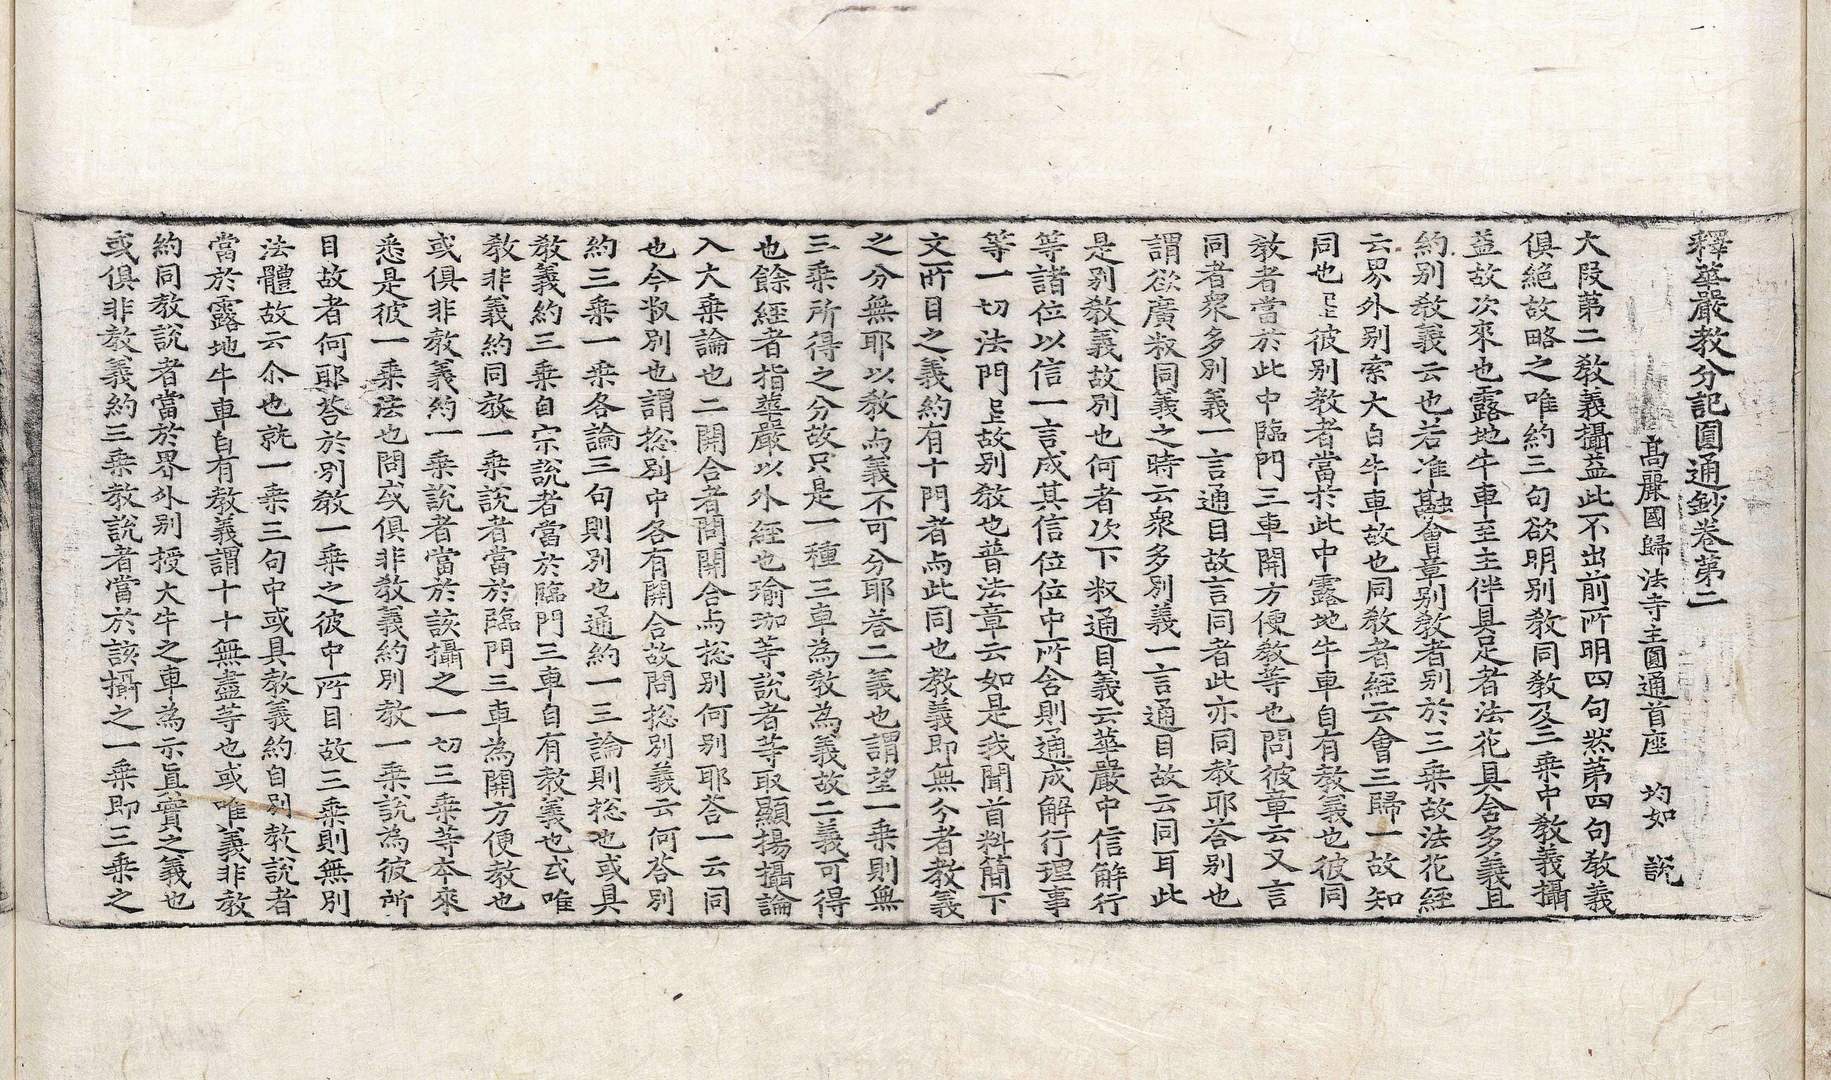 釋華嚴教分記圓通鈔卷第二
高麗國歸法寺主圓通首座　均如　說
大叚第二教義攝益此不出前所明四句然第四句教義
俱絕故略之唯約三句欲明別教同教及三乗中教義攝
益故次來也露地牛車至主伴具足者法花具含多義且
約別教義云也若准融會章別教者別於三乗故法花經
云界外別索大白牛車故也同教者經云會三歸一故知
同也𤴓彼別教者當於此中露地牛車自有教義也彼同
教者當於此中臨門三車開方便教等也問彼章云又言
同者衆多別義一言通目故言同者此亦同教耶答別也
謂欲廣叙同義之時云衆多別義一言通目故云同耳此
是別教義故別也何者次下叙通目義云華嚴中信解行
等諸位以信一言成其信位位中所含則通成解行理事
等一切法門𤴓故別教也普法章云如是我聞首料簡下
文所目之義約有十門者与此同也教義即無今者教義
之分無耶以教与義不可分耶荅二義也謂望一乗則無
三乗所得之分故只是一種三車為教為義故二義可得
也餘經者指華嚴以外經也瑜珈等說者等取顯揚攝論
入大乗論也二開合者問開合与捴別何別耶荅一云同
也今叙別也謂捴別中各有開合故問捴別義云何荅別
約三乗一乗各論三句則別也通約一三論則捴也或具
教義約三乗自宗說者當於臨門三車自有教義也或唯
教非義約同教一乗說者當於臨門三車為開方便教也
或俱非教義約一乗說者當於該攝之一切三乗等本來
悉是彼一乗法也問或俱非教義約別教一乗說為彼所
目故者何耶荅於別教一乗之彼中所目故三乗則無別
法體故云尒也就一乗三句中或具教義約自別教說者
當於露地牛車自有教義謂十十無盡等也或唯義非教
約同教說者當於界外別授大牛之車為示真實之義也
或俱非教義約三乗教說者當於該攝之一乗即三乗之